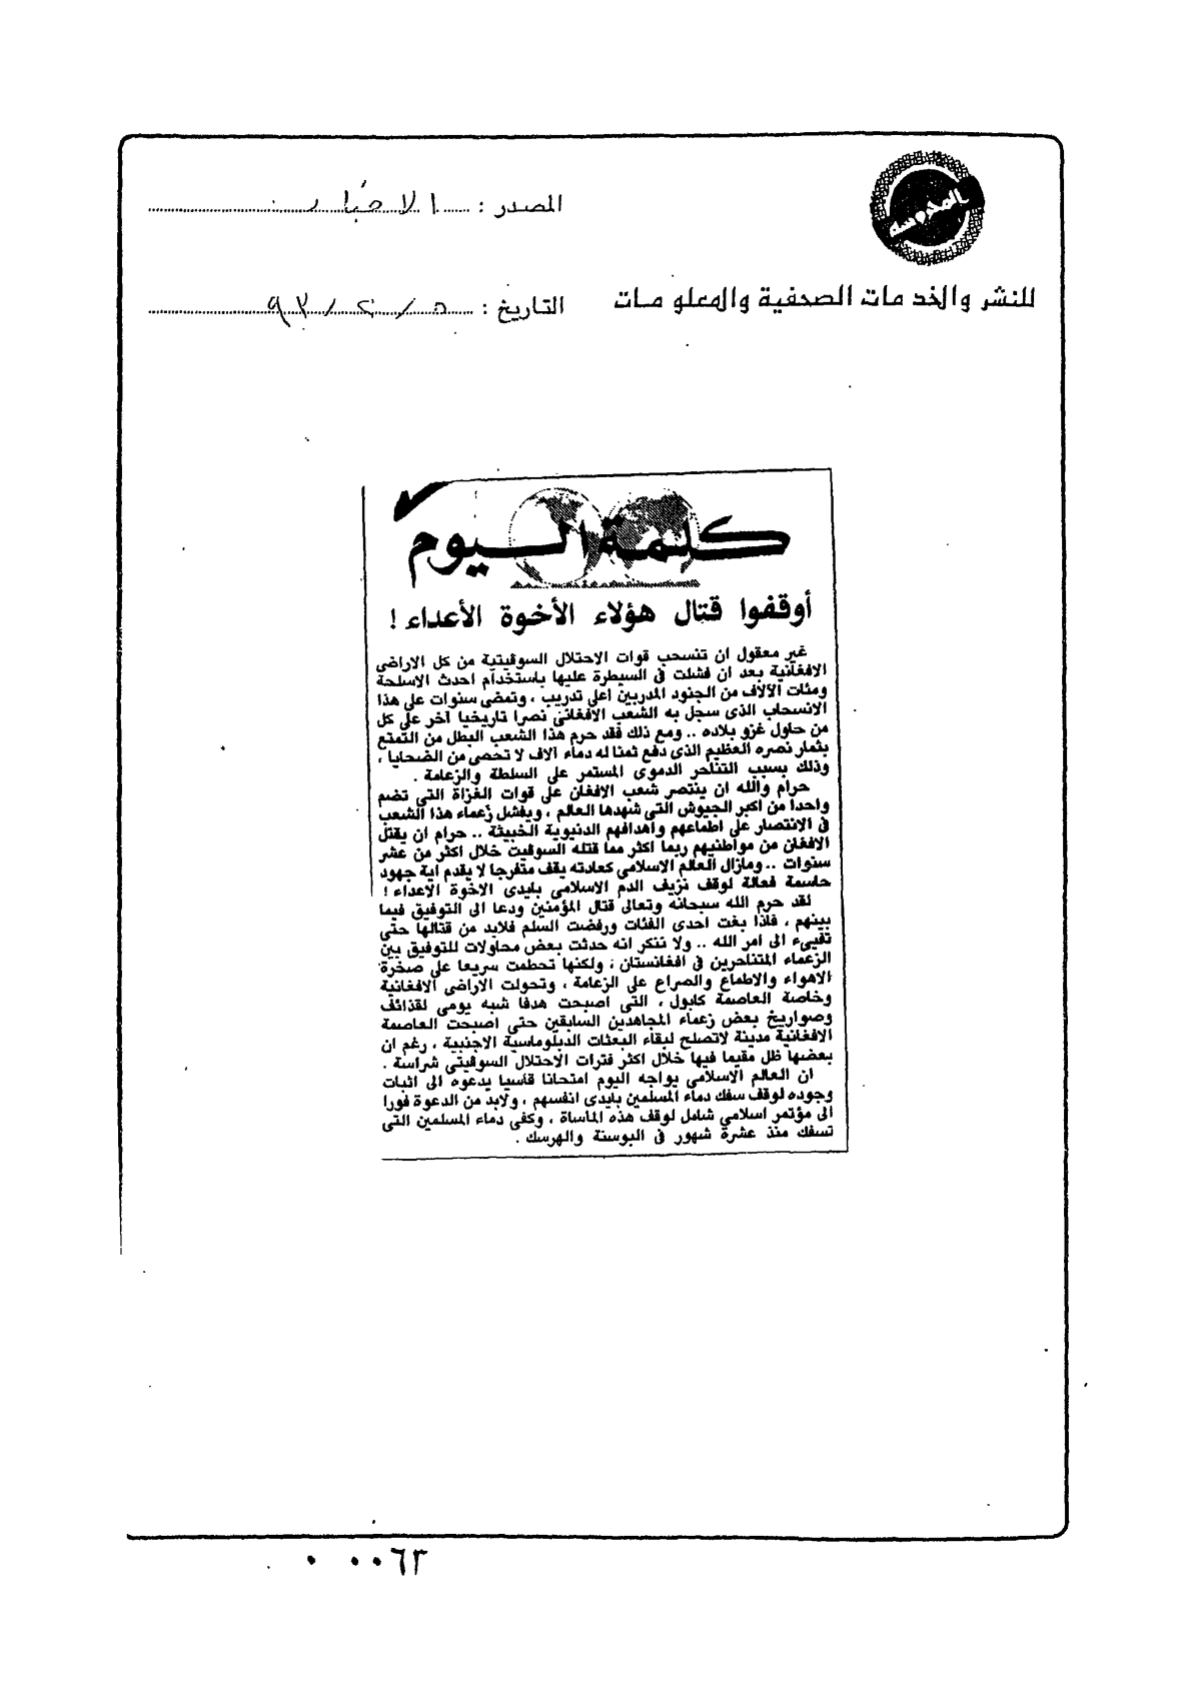 المحروسة
المصدر : الاخبار
للنشر والخدمات الصحفية والمعلومات
التاريخ : ٥ / ٢ / ٩٣
كلمة اليوم
أوقفوا قتال هؤلاء الأخوة الأعداء !
غير معقول ان تنسحب قوات الاحتلال السوفيتية من كل الاراضى
الافغانية بعد ان فشلت فى السيطرة عليها باستخدام احدث الاسلحة
ومئات الآلاف من الجنود المدربين اعلى تدريب ، وتمضى سنوات على هذا
الانسحاب الذى سجل به الشعب الافغانى نصرا تاريخيا آخر على كل
من حاول غزو بلاده .. ومع ذلك فقد حرم هذا الشعب البطل من التمتع
بثمار نصره العظيم الذى دفع ثمنا له دماء آلاف لا تحصى من الضحايا ،
وذلك بسبب التناحر الدموى المستمر على السلطة والزعامة .
حرام والله ان ينتصر شعب الافغان على قوات الغزاة التى تضم
واحدا من اكبر الجيوش التى شهدها العالم ، ويفشل زعماء هذا الشعب
فى الانتصار على اطماعهم واهدافهم الدنيوية الخبيثة .. حرام ان يقتل
الافغان من مواطنيهم ربما اكثر مما قتله السوفيت خلال اكثر من عشر
سنوات .. ومازال العالم الاسلامى كعادته يقف متفرجا لا يقدم اية جهود
حاسمة فعالة لوقف نزيف الدم الاسلامى بايدى الاخوة الاعداء !
لقد حرم الله سبحانه وتعالى قتال المؤمنين ودعا الى التوفيق فيما
بينهم ، فاذا بغت احدى الفئات ورفضت السلم فلابد من قتالها حتى
تفيىء الى امر الله .. ولا ننكر انه حدثت بعض محاولات للتوفيق بين
الزعماء المتناحرين فى افغانستان ، ولكنها تحطمت سريعا على صخرة
الاهواء والاطماع والصراع على الزعامة ، وتحولت الاراضى الافغانية
وخاصة العاصمة كابول ، التى اصبحت هدفا شبه يومى لقذائف
وصواريخ بعض زعماء المجاهدين السابقين حتى اصبحت العاصمة
الافغانية مدينة لاتصلح لبقاء البعثات الدبلوماسية الاجنبية ، رغم ان
بعضها ظل مقيما فيها خلال اكثر فترات الاحتلال السوفيتى شراسة .
ان العالم الاسلامى يواجه اليوم امتحانا قاسيا يدعوه الى اثبات
وجوده لوقف سفك دماء المسلمين بايدى انفسهم ، ولابد من الدعوة فورا
الى مؤتمر اسلامى شامل لوقف هذه المأساة ، وكفى دماء المسلمين التى
تسفك منذ عشرة شهور فى البوسنة والهرسك .
٠ ٠٠٦٣